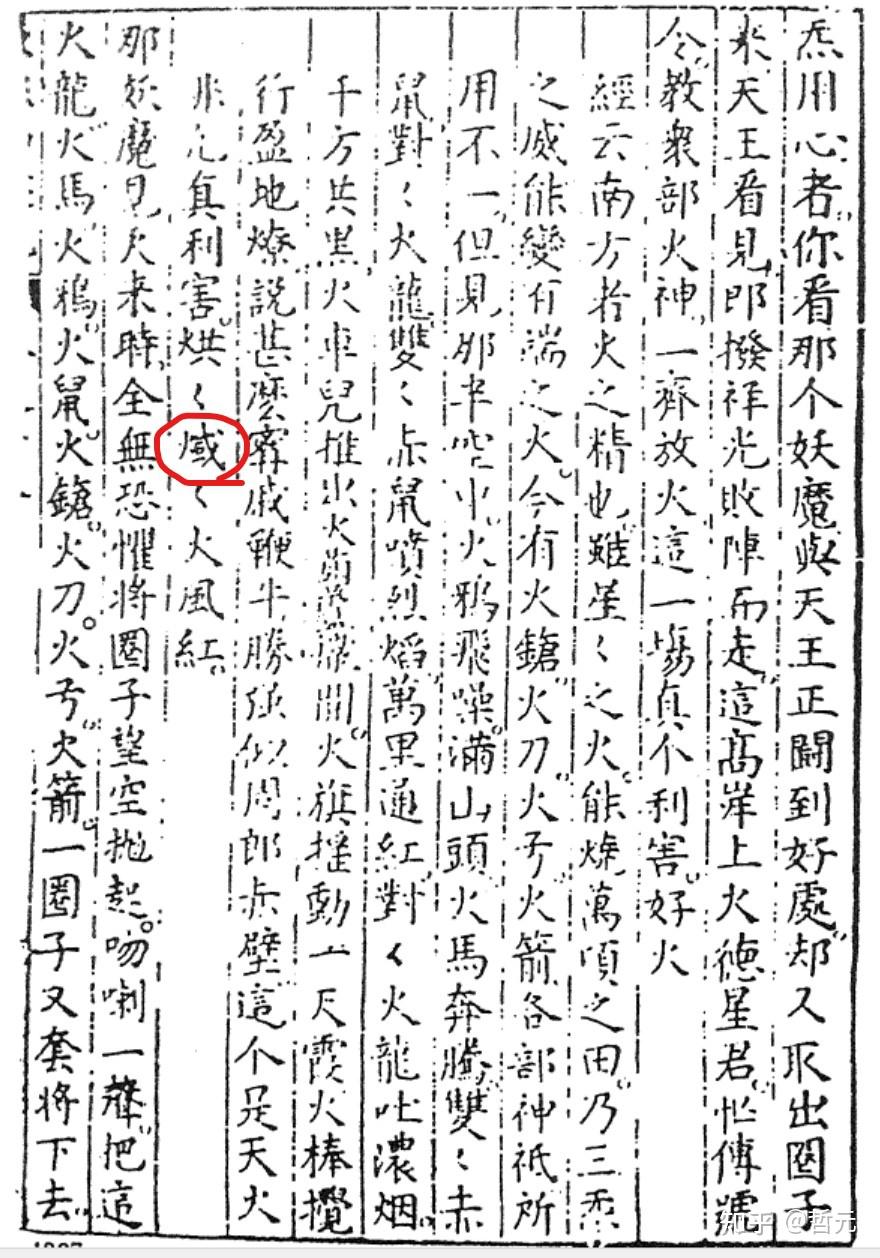 炁用心者你看那个妖魔與天王正鬪到好處却又取出圈子
來天王看見即撥祥光敗陣而走這高岸上火德星君忙傳號
令教衆部火神一齊放火這一塲真个利害好火
經云南方者火之精也雖星〻之火能燒萬頃之田乃三炁
之威能變百端之火今有火鎗火刀火弓火箭各部神祇所
用不一但見那半空中火鴉飛噪滿山頭火馬奔騰雙〻赤
鼠對〻火龍雙〻赤鼠噴烈焰萬里通紅對〻火龍吐濃烟
千方共黑火車兒推出火葫蘆撒開火旗摇動一天霞火棒攪
行盈地燎說甚麽甯戚鞭牛勝强似周郎赤壁這个是天火
非凡真利害烘〻〻火風紅
那妖魔見火來時全無恐懼將圈子望空抛起吻喇一聲把這
火龍火馬火鴉火鼠火鎗火刀火弓火箭一圈子又套將下去
知乎 @哲元